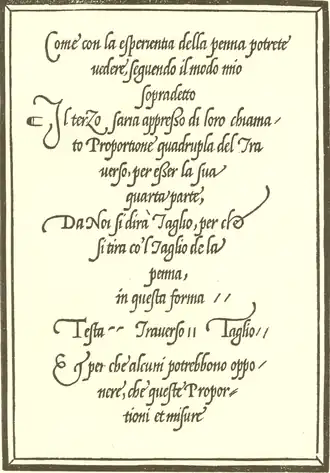 Come con la esperientia della penna potrete
uedere, seguendo il modo mio
sopradetto
Il terzo saria appresso di loro chiama/
to Proportione quadrupla del Tra
uerso, per esser la sua
quarta parte,
Da Noi si dirà Taglio, per che
si tira co'l Taglio de la
penna,
in questa forma //
Testa -- Trauerso ıı Taglio //
Et per che alcuni potrebbono oppo/
nere, che queste Propor/
tioni et misure